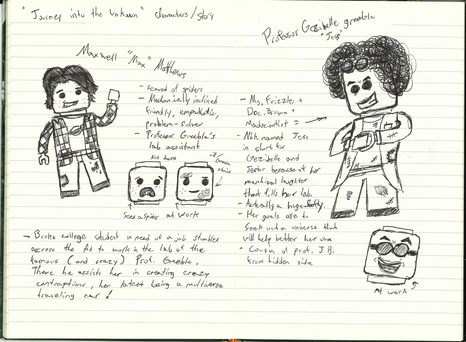 "Journey into the Unknown" characters/story
Maxwell "Max" Matthews
- scared of spiders
- Mechanically inclined
friendly, empathetic,
problem-solver
- Professor Greeble's
lab assistant
Sees a spider
at work
→ Broke college student in need of a job stumbles
across the Ad to work in the lab of the
famous (and crazy) Prof. Greeble.
There he assists her in creating crazy
contraptions, her latest being a multiverse
traveling car!
Professor Gezibelle Greeble
"Jess"
- Ms. Frizzle +
Doc. Brown +
Mad scientist =
- Nick named
is short for
Gezibelle and
because of her
maniacal laughter
that fills her lab
- Actually a huge
- Her goals are to
seek out a universe that
will help better her own
- Cousin of prof. J.B.
from hidden side
At work